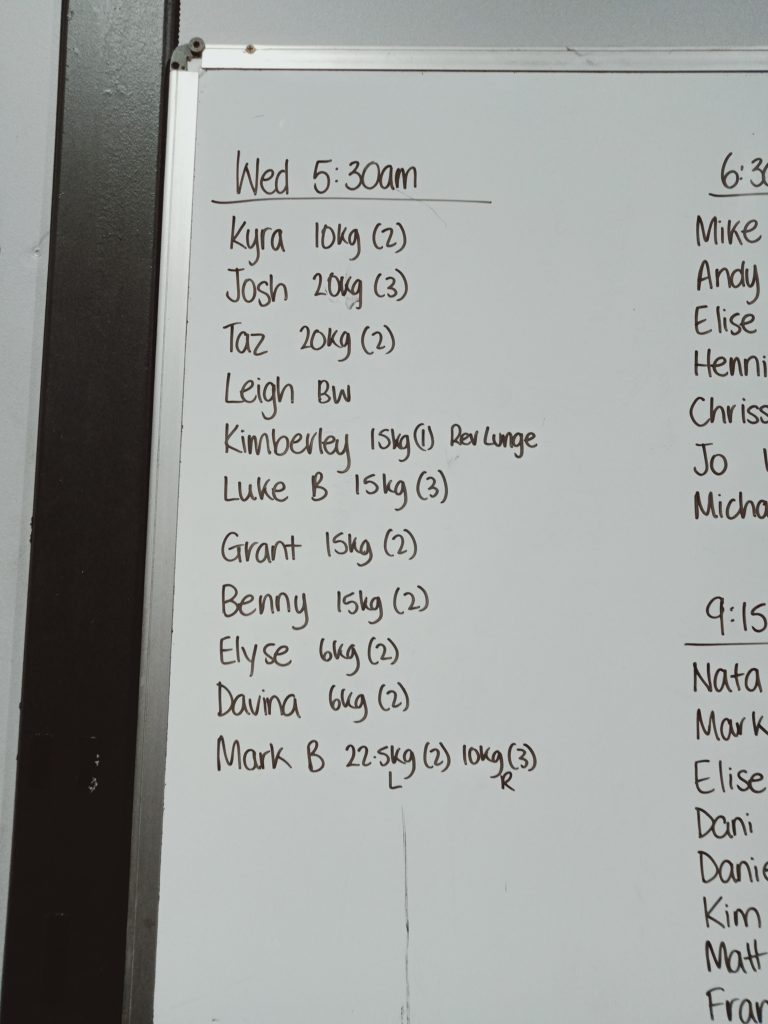 Wed 5:30am
Kyra 10kg (2)
Josh 20kg (3)
Taz 20kg (2)
Leigh BW
Kimberley 15kg (1) Rev Lunge
Luke B 15kg (3)
Grant 15kg (2)
Benny 15kg (2)
Elyse 6kg (2)
Davina 6kg (2)
Mark B 22.5kg (2) 10kg (3)
L R
6:30
Mike
Andy
Elise
Henni
Chriss
Jo
Micha
9:15
Nata
Mark
Elise
Dani
Danie
Kim
Matt
Fran